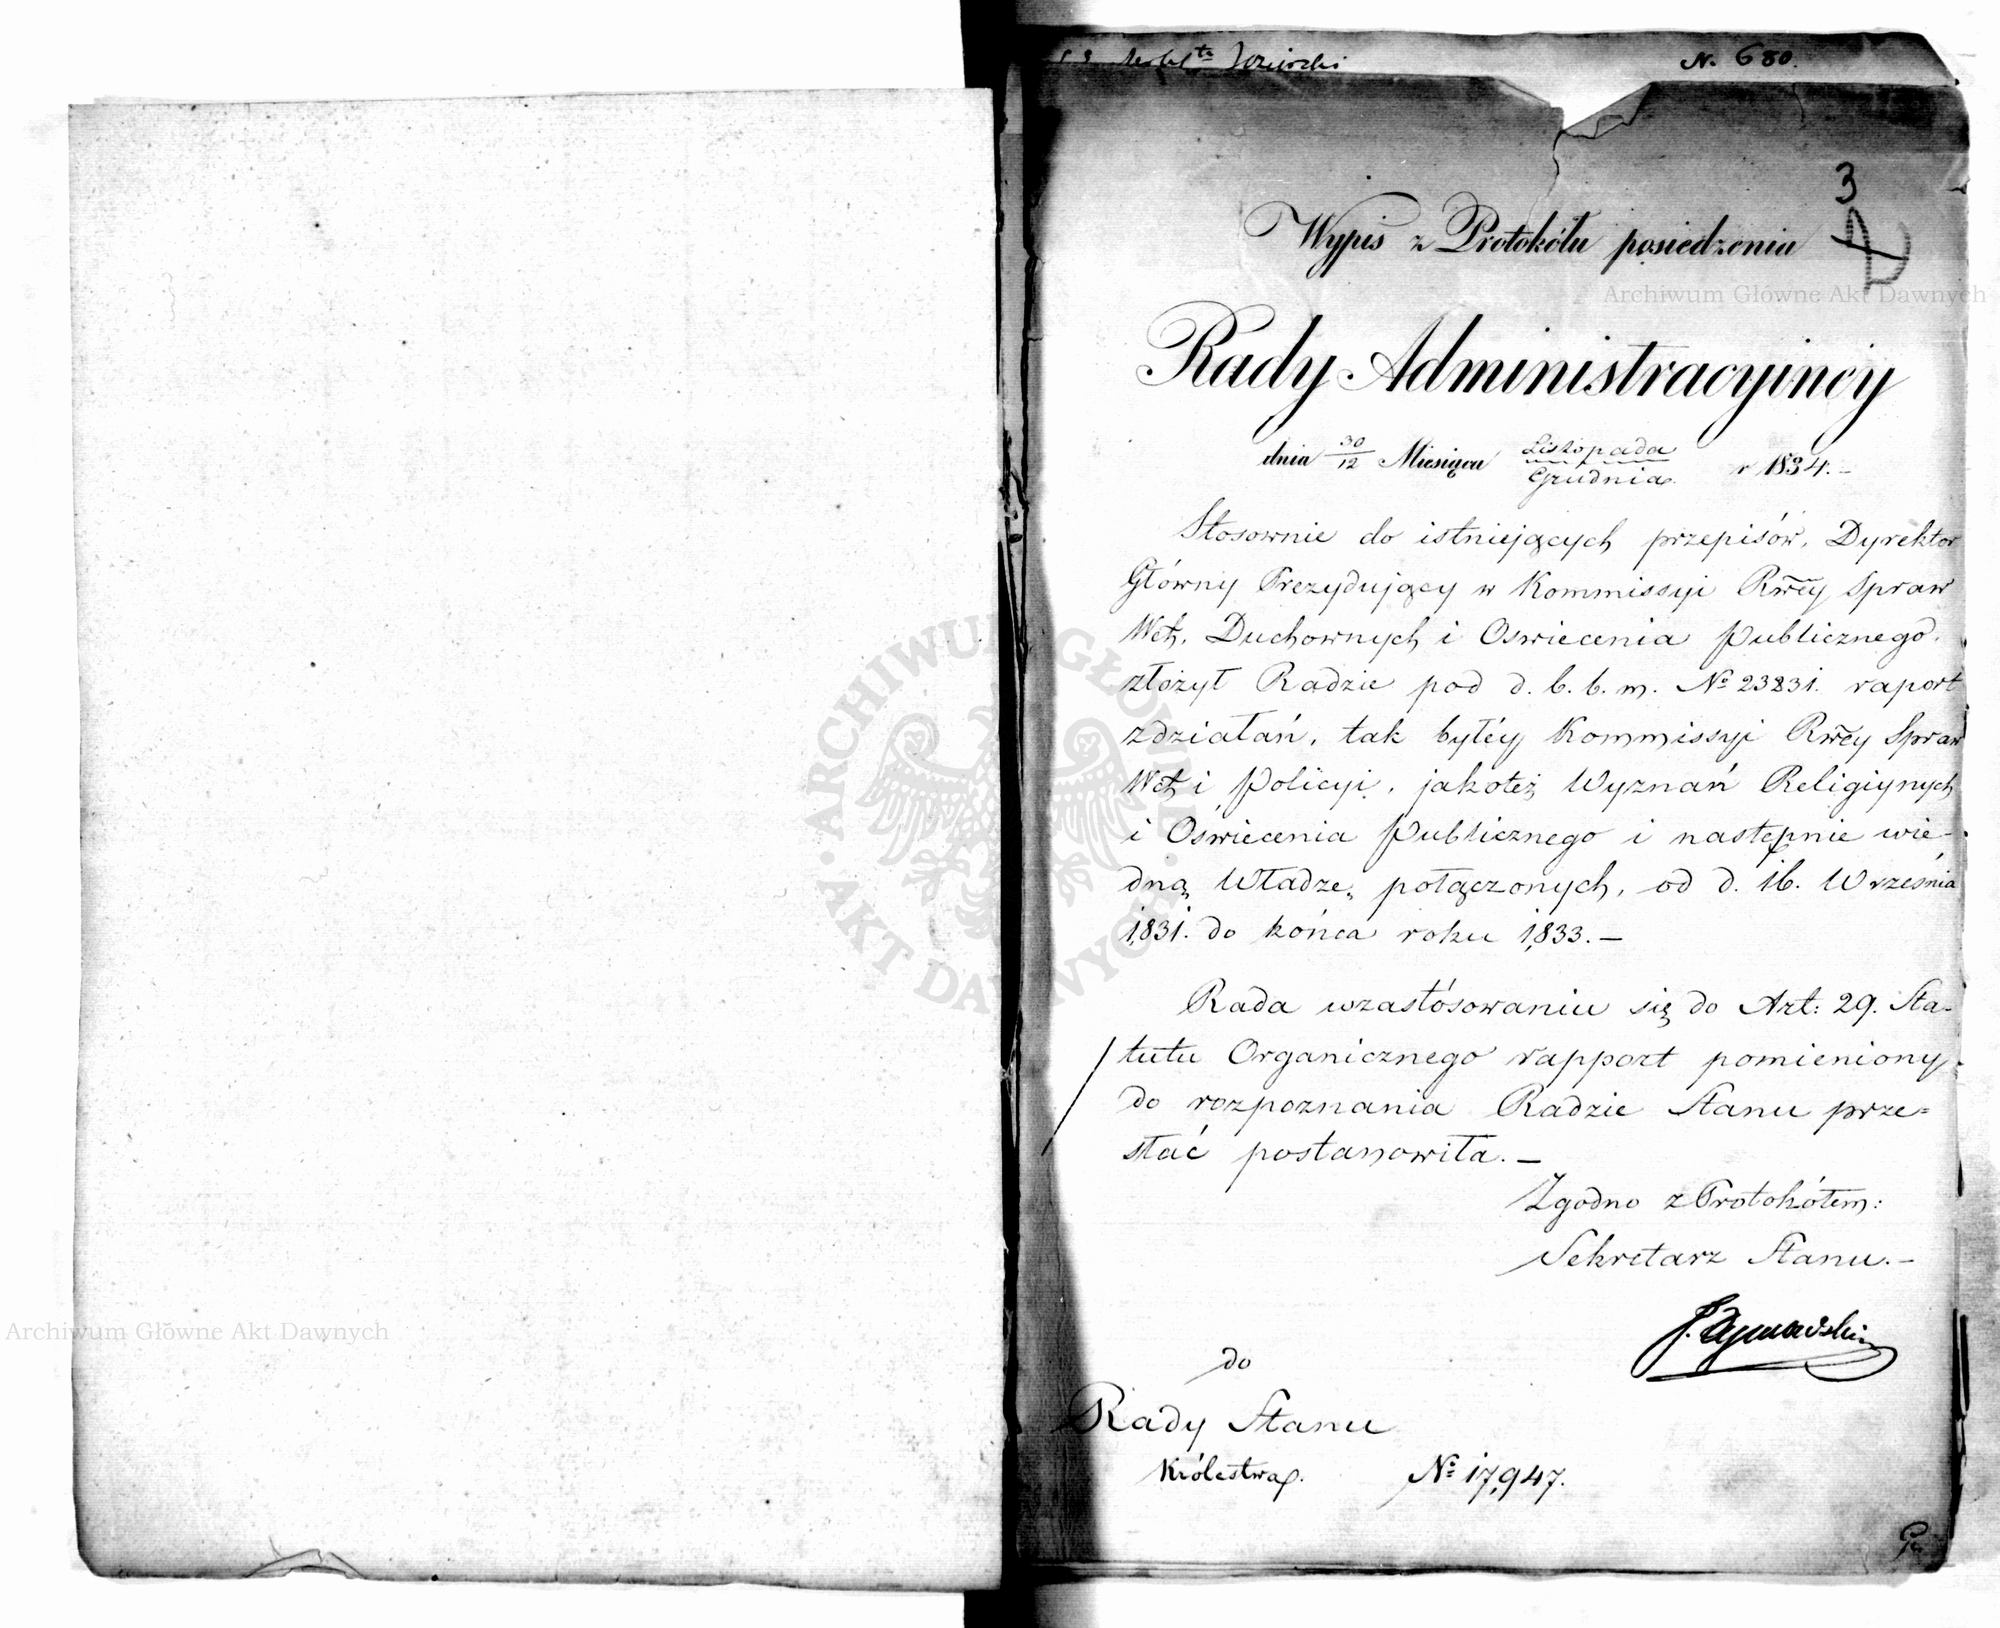 N. 680.
3
Wypis z Protokółu posiedzenia
Rady Administracyiney
dnia 30/12 Miesiąca Listopada/Grudnia r 1834.-
Stosownie do istniejących przepisów, Dyrektor
Główny Prezydujący w Kommissyi Rwey Spraw
Wch, Duchownych i Oswiecenia Publicznego,
złożył Radzie pod d. b. b. m. No 23831. raport
zdziałań, tak byłéy Kommissyi Rwey Spraw
Wch i Policyi, jakoteż Wyznań Religiynych
i Oświecenia Publicznego i następnie wie-
dną Władzę połączonych, od d. 16. Września
1831. do końca roku 1833.—
Rada wzastósowaniu się do Art: 29. Sta-
tutu Organicznego rapport pomieniony
do rozpoznania Radzie Stanu prze=
słać postanowiła.—
Zgodno z Protokółem:
Sekretarz Stanu.-
J. Tymowski
do
Rady Stanu
Królestwa.
No 17,947.
Archiwum Główne Akt Dawnych
Archiwum Główne Akt Dawnych
ARCHIWUM GŁÓWNE · AKT DAWNYCH ·